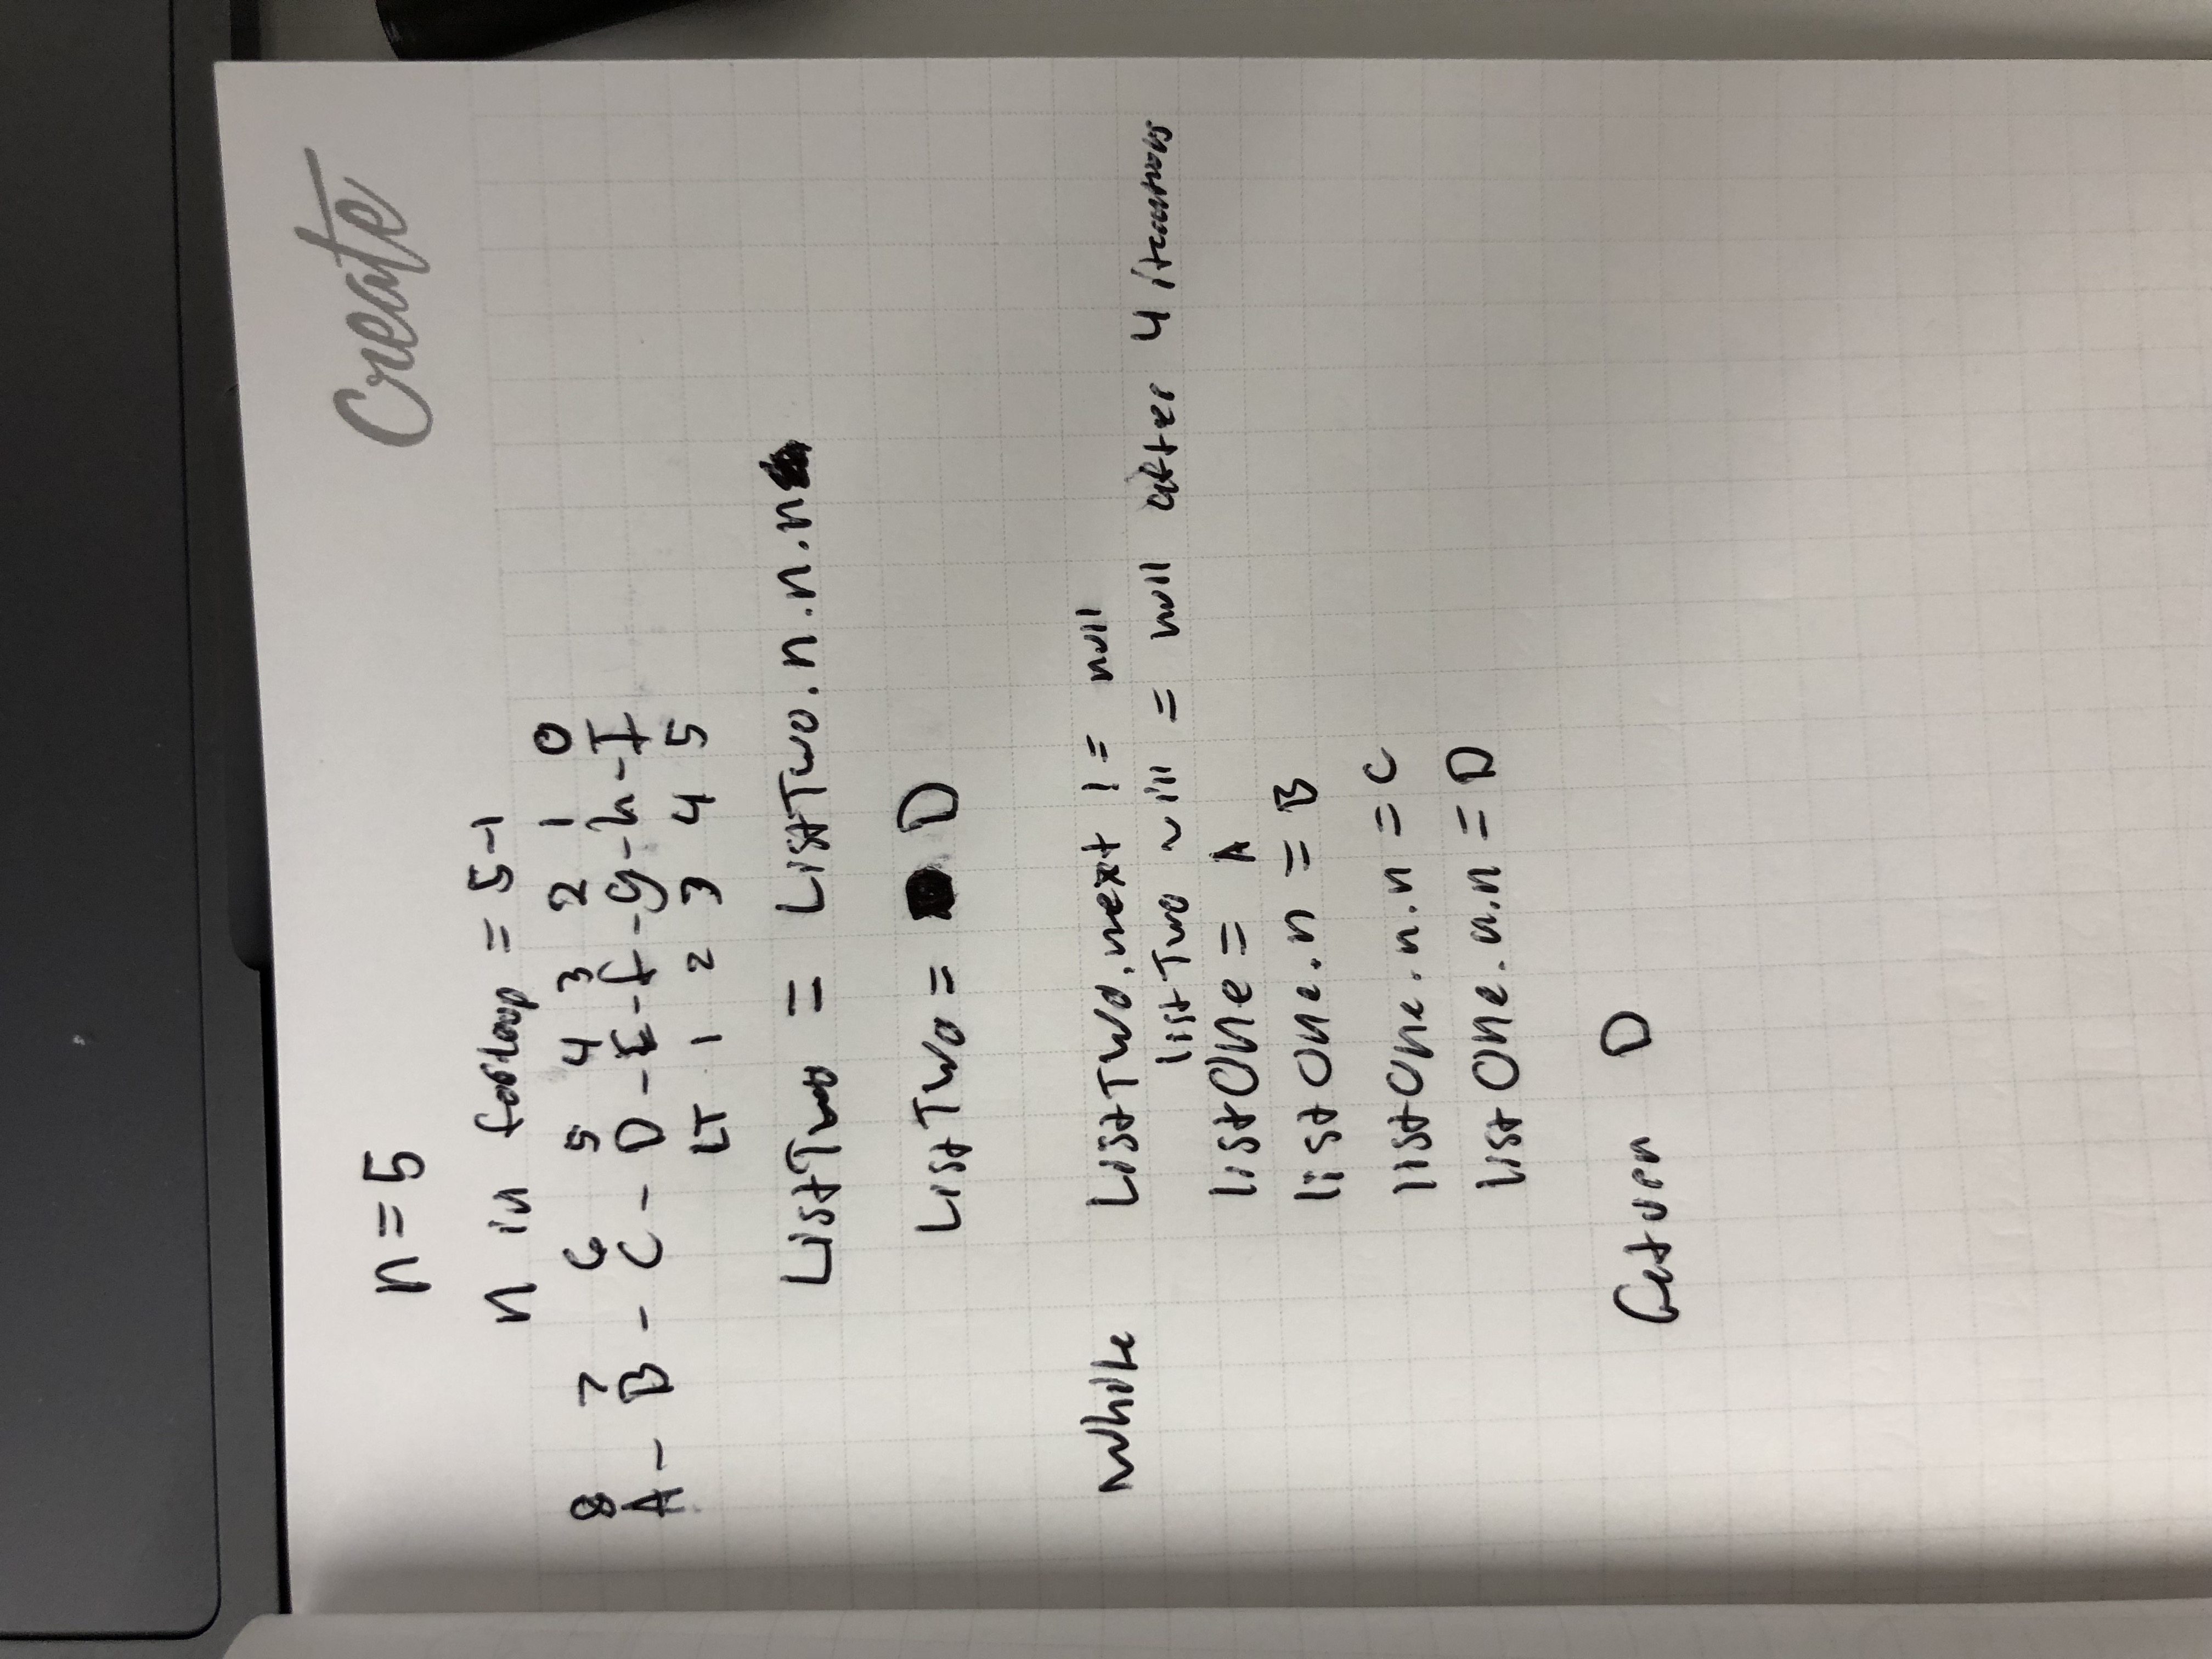 Create
n = 5
n in forloop = 5-1
8 7 6 5 4 3 2 1 0
A - B - C - D - E - f - g - h - I
LT 1 2 3 4 5
ListTwo = ListTwo.n.n.n
ListTwo = D
While ListTwo.next != null
listTwo will = null after 4 iterations
listOne = A
listOne.n = B
listOne.n.n = C
listOne.n.n = D
Return D